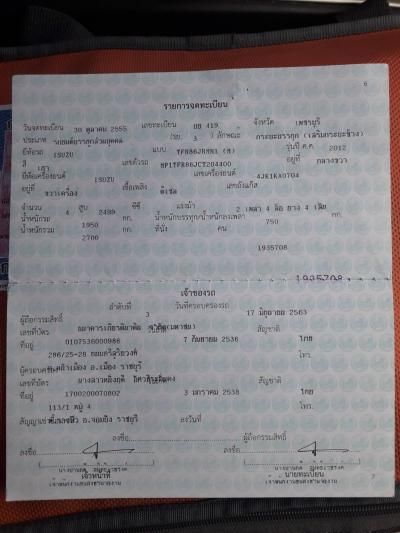 6
รายการจดทะเบียน
วันจดทะเบียน 30 ตุลาคม 2555 เลขทะเบียน บย 419 จังหวัด เพชรบุรี
ประเภท รถยนต์บรรทุกส่วนบุคคล (รย. 3 ) ลักษณะ กระบะบรรทุก (เสริมกระบะข้าง)
ยี่ห้อรถ ISUZU แบบ รุ่นปี ค.ศ. 2012
สี เทา เลขตัวรถ MP1TFR86JCT204400 อยู่ที่ กลางขวา
ยี่ห้อเครื่องยนต์ ISUZU เลขเครื่องยนต์ 4JK1KX0704
อยู่ที่ ขวาเครื่อง เชื้อเพลิง ดีเซล เลขถังแก๊ส
จำนวน 4 สูบ 2499 ซีซี แรงม้า 2 เพลา 4 ล้อ ยาง 4 เส้น
น้ำหนักรถ 1950 กก. น้ำหนักบรรทุก/น้ำหนักลงเพลา 750 กก.
น้ำหนักรวม 2700 กก. ที่นั่ง คน
1935708
1935708
เจ้าของรถ
ลำดับที่ 3 วันที่ครอบครองรถ 17 มิถุนายน 2563
ผู้ถือกรรมสิทธิ์ ธนาคารเกียรตินาคิน จำกัด(มหาชน)
เลขที่บัตร 0107536000986 7 กันยายน 2536 สัญชาติ ไทย
ที่อยู่ 286/25-28 ถนนศรีสุริยวงศ์ โทร.
ต.หน้าเมือง อ.เมือง ราชบุรี
ผู้ครอบครอง นางสาวหนึ่งฤดี
เลขที่บัตร 1700200070802 3 มกราคม 2538 สัญชาติ ไทย
ที่อยู่ 113/1 หมู่ 4 โทร.
สัญญาเช่าซื้อเลขที่ อ.จอมบึง ราชบุรี ลงวันที่
ลงชื่อ ผู้ถือกรรมสิทธิ์
ลงชื่อ ลงชื่อ
เจ้าหน้าที่ นายทะเบียน
เจ้าพนักงานขนส่งชำนาญงาน เจ้าพนักงานขนส่งชำนาญงาน